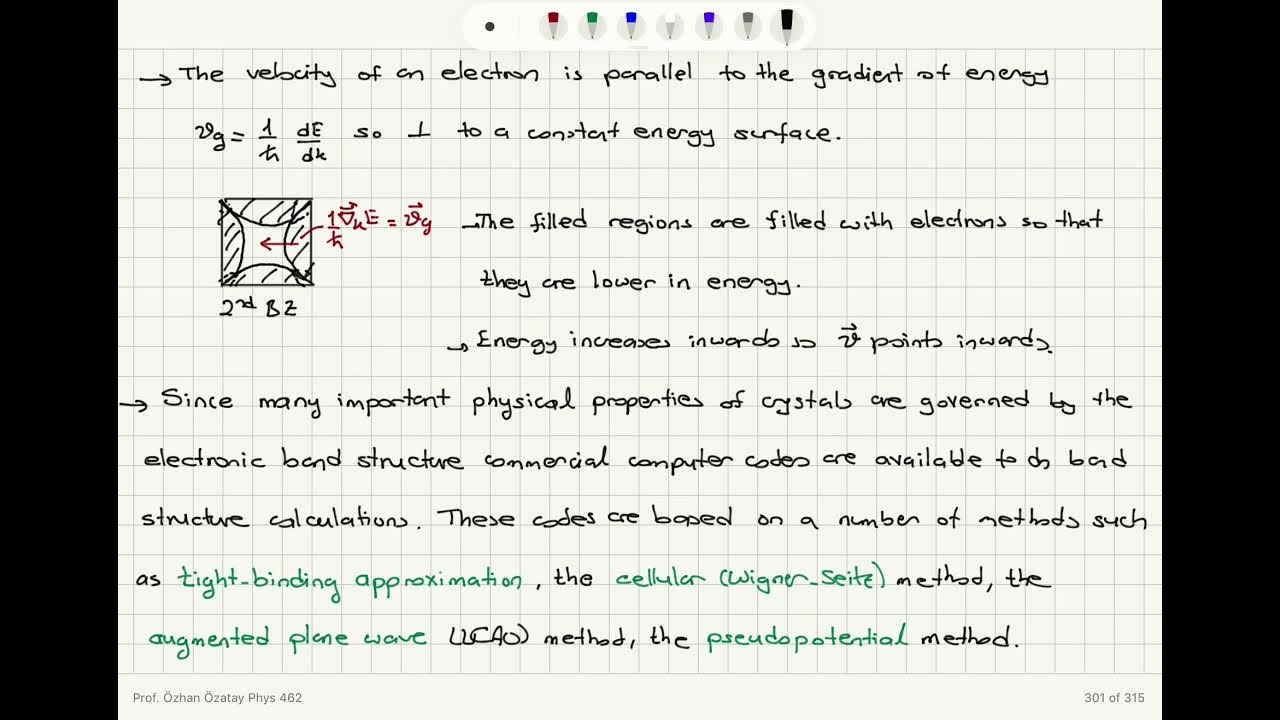 → The velocity of an electron is parallel to the gradient of energy
𝑣g = 1/ħ dE/dk so ⊥ to a constant energy surface.
1/ħ ∇⃗kE = 𝑣⃗g
2nd BZ
→ The filled regions are filled with electrons so that
they are lower in energy.
→ Energy increases inwards so 𝑣⃗ points inwards.
→ Since many important physical properties of crystals are governed by the
electronic band structure commercial computer codes are available to do band
structure calculations. These codes are based on a number of methods such
as tight-binding approximation, the cellular (Wigner-Seitz) method, the
augmented plane wave (LCAO) method, the pseudopotential method.
Prof. Özhan Özatay Phys 462
301 of 315